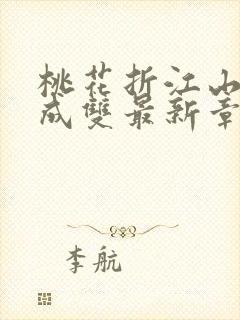 桃花折江山
成雙最新章
李航